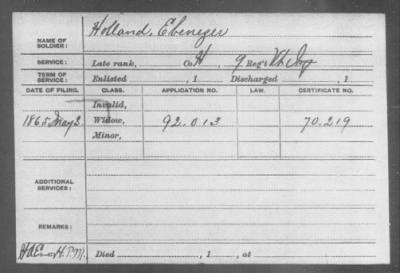 NAME OF SOLDIER: Holland, Ebenezer
SERVICE: Late rank, Co. H, 9 Reg't Vt. Inf
TERM OF SERVICE: Enlisted , 1 Discharged , 1
DATE OF FILING. CLASS. APPLICATION NO. LAW. CERTIFICATE NO.
Invalid,
1865 May 2 Widow, 92.013 70.219
Minor,
ADDITIONAL SERVICES:
REMARKS:
Died , 1 , at